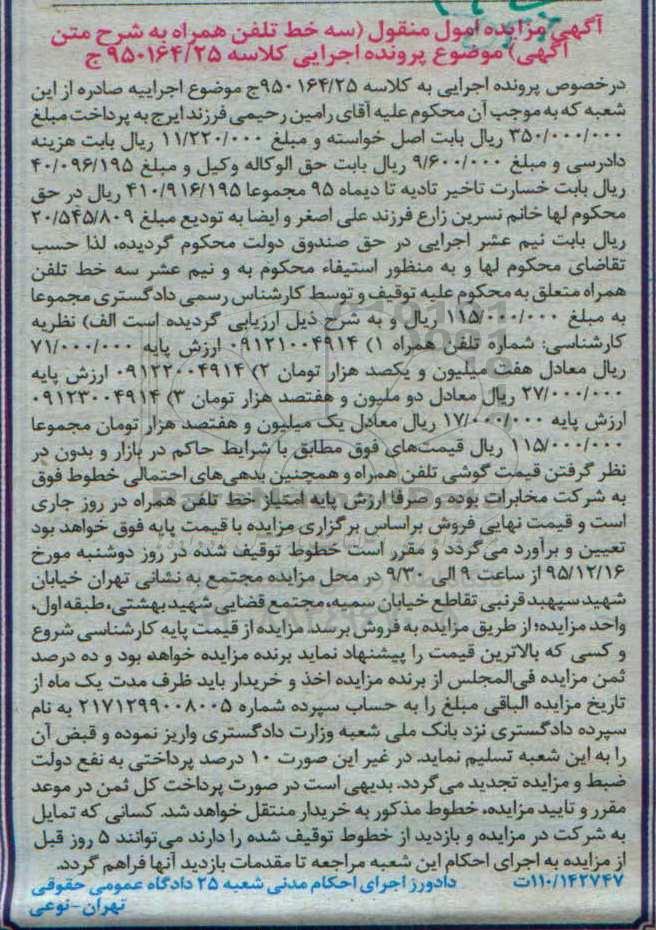 آگهی مزایده اموال منقول (سه خط تلفن همراه به شرح متن
آگهی) موضوع پرونده اجرایی کلاسه ۹۵۰۱۶۴/۲۵ج
درخصوص پرونده اجرایی به کلاسه ۹۵۰۱۶۴/۲۵ج موضوع اجراییه صادره از این
شعبه که به موجب آن محکوم علیه آقای رامین رحیمی فرزند ایرج به پرداخت مبلغ
۳۵۰/۰۰۰/۰۰۰ ریال بابت اصل خواسته و مبلغ ۱۱/۲۲۰/۰۰۰ ریال بابت هزینه
دادرسی و مبلغ ۹/۶۰۰/۰۰۰ ریال بابت حق الوکاله وکیل و مبلغ ۴۰/۰۹۶/۱۹۵
ریال بابت خسارت تاخیر تادیه تا دیماه ۹۵ مجموعا ۴۱۰/۹۱۶/۱۹۵ ریال در حق
محکوم لها خانم نسرین زارع فرزند علی اصغر و ایضا به تودیع مبلغ ۲۰/۵۴۵/۸۰۹
ریال بابت نیم عشر اجرایی در حق صندوق دولت محکوم گردیده، لذا حسب
تقاضای محکوم لها و به منظور استیفاء محکوم به و نیم عشر سه خط تلفن
همراه متعلق به محکوم علیه توقیف و توسط کارشناس رسمی دادگستری مجموعا
به مبلغ ۱۱۵/۰۰۰/۰۰۰ ریال و به شرح ذیل ارزیابی گردیده است الف) نظریه
کارشناسی: شماره تلفن همراه ۱) ۰۹۱۲۱۰۰۴۹۱۴ ارزش پایه ۷۱/۰۰۰/۰۰۰
ریال معادل هفت میلیون و یکصد هزار تومان ۲) ۰۹۱۲۲۰۰۴۹۱۴ ارزش پایه
۲۷/۰۰۰/۰۰۰ ریال معادل دو ملیون و هفتصد هزار تومان ۳) ۰۹۱۲۳۰۰۴۹۱۴
ارزش پایه ۱۷/۰۰۰/۰۰۰ ریال معادل یک میلیون و هفتصد هزار تومان مجموعا
۱۱۵/۰۰۰/۰۰۰ ریال قیمت‌های فوق مطابق با شرایط حاکم در بازار و بدون در
نظر گرفتن قیمت گوشی تلفن همراه و همچنین بدهی‌های احتمالی خطوط فوق
به شرکت مخابرات بوده و صرفا ارزش پایه امتیاز خط تلفن همراه در روز جاری
است و قیمت نهایی فروش براساس برگزاری مزایده با قیمت پایه فوق خواهد بود
تعیین و برآورد می‌گردد و مقرر است خطوط توقیف شده در روز دوشنبه مورخ
۹۵/۱۲/۱۶ از ساعت ۹ الی ۹/۳۰ در محل مزایده مجتمع به نشانی تهران خیابان
شهید سپهبد قرنی تقاطع خیابان سمیه، مجتمع قضایی شهید بهشتی، طبقه اول،
واحد مزایده؛ از طریق مزایده به فروش برسد. مزایده از قیمت پایه کارشناسی شروع
و کسی که بالاترین قیمت را پیشنهاد نماید برنده مزایده خواهد بود و ده درصد
ثمن مزایده فی‌المجلس از برنده مزایده اخذ و خریدار باید ظرف مدت یک ماه از
تاریخ مزایده الباقی مبلغ را به حساب سپرده شماره ۲۱۷۱۲۹۹۰۰۸۰۰۵ به نام
سپرده دادگستری نزد بانک ملی شعبه وزارت دادگستری واریز نموده و قبض آن
را به این شعبه تسلیم نماید. در غیر این صورت ۱۰ درصد پرداختی به نفع دولت
ضبط و مزایده تجدید می‌گردد. بدیهی است در صورت پرداخت کل ثمن در موعد
مقرر و تایید مزایده، خطوط مذکور به خریدار منتقل خواهد شد. کسانی که تمایل
به شرکت در مزایده و بازدید از خطوط توقیف شده را دارند می‌توانند ۵ روز قبل
از مزایده به اجرای احکام این شعبه مراجعه تا مقدمات بازدید آنها فراهم گردد.
۱۱۰/۱۴۲۷۴۷ت دادورز اجرای احکام مدنی شعبه ۲۵ دادگاه عمومی حقوقی
تهران-نوعی